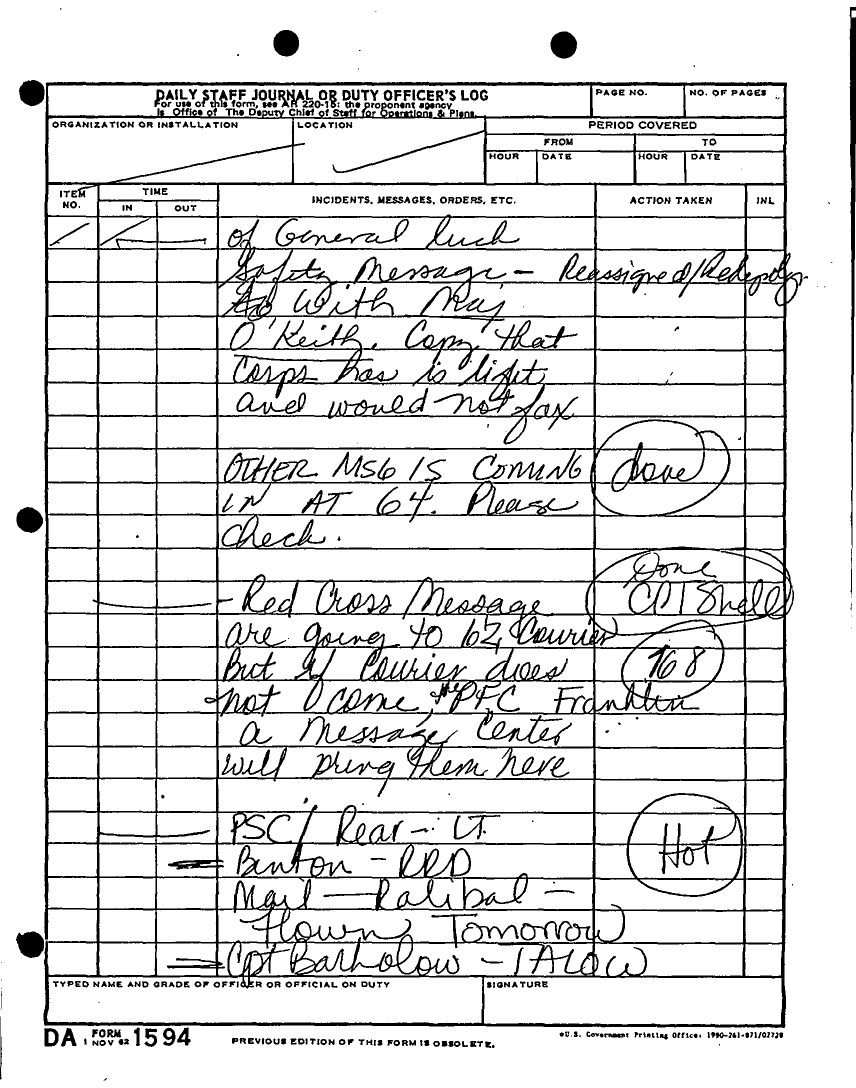 DAILY STAFF JOURNAL OR DUTY OFFICER'S LOG
For use of this form, see AR 220-15: the proponent agency
is Office of The Deputy Chief of Staff for Operations & Plans.
PAGE NO.
NO. OF PAGES
ORGANIZATION OR INSTALLATION
LOCATION
PERIOD COVERED
FROM
TO
HOUR
DATE
HOUR
DATE
ITEM NO.
TIME
IN
OUT
INCIDENTS, MESSAGES, ORDERS, ETC.
ACTION TAKEN
INL
of General luck
Safety Message – Reassigned/
With Maj
O'Keith. Copy that
Corps has is light
and would not fax
OTHER MSG IS COMING
IN AT 64. Please
check.
done
- Red Cross Message
Done
CPT Shell
are going to 62, Courier
But if Courier does
768
not come, the PFC Franklin
a Message Center
will bring them here
PSC / Rear – LT.
Hot
Banton – RRD
Mail –
Flown Tomorrow
Cpt Barholow – TALOW
TYPED NAME AND GRADE OF OFFICER OR OFFICIAL ON DUTY
SIGNATURE
DA FORM 1594
1 NOV 62
PREVIOUS EDITION OF THIS FORM IS OBSOLETE.
U.S. Government Printing Office: 1990-261-871/02728